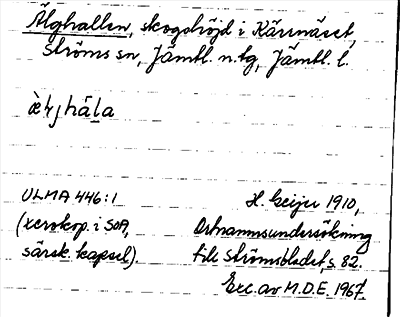 Älghallen, skogshöjd i Kärrnäset,
Ströms sn, Jämtl. n. tg, Jämtl. l.
ULMA 446:1
H. Geijer 1910,
(xerokop. i SOA, Ortnamnsundersökning
särsk. kapsel). fik Strömsbladet, s. 82.
Exc. av M.D.E. 1967.